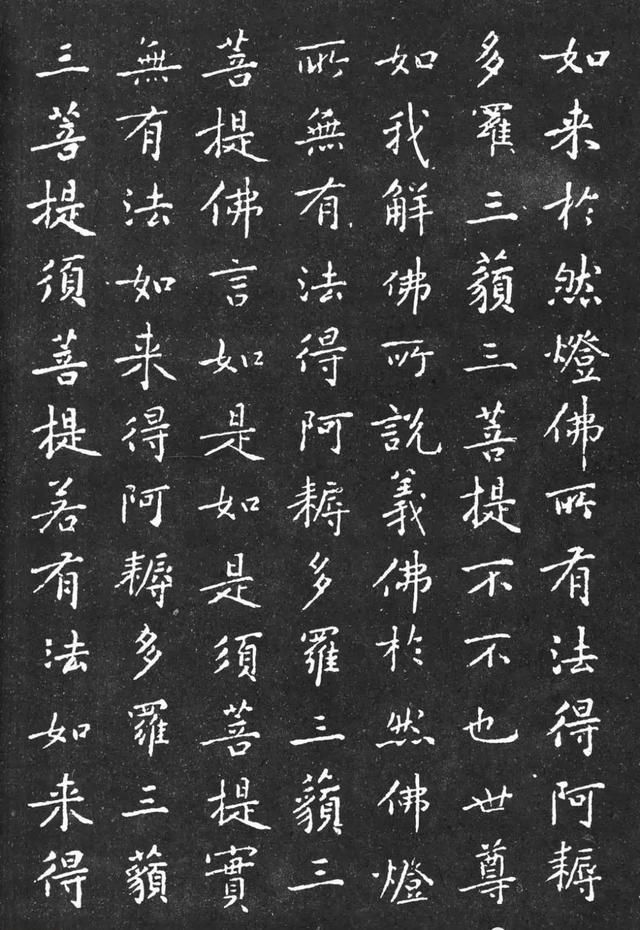 如来於然燈佛所有法得阿耨
多羅三藐三菩提不不也世尊
如我解佛所說義佛於然佛燈
所無有法得阿耨多羅三藐三
菩提佛言如是如是須菩提實
無有法如来得阿耨多羅三藐
三菩提須菩提若有法如来得